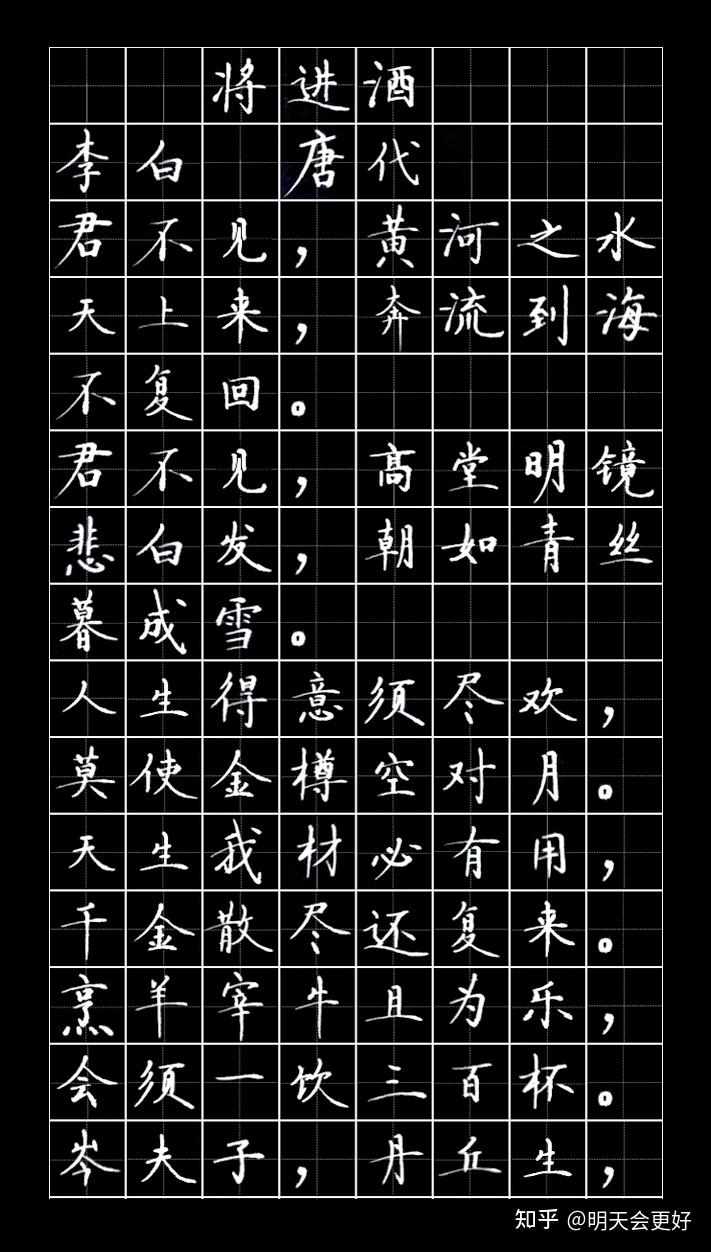 将进酒
李白 唐代
君不见，黄河之水
天上来，奔流到海
不复回。
君不见，高堂明镜
悲白发，朝如青丝
暮成雪。
人生得意须尽欢，
莫使金樽空对月。
天生我材必有用，
千金散尽还复来。
烹羊宰牛且为乐，
会须一饮三百杯。
岑夫子，丹丘生，
知乎 @明天会更好